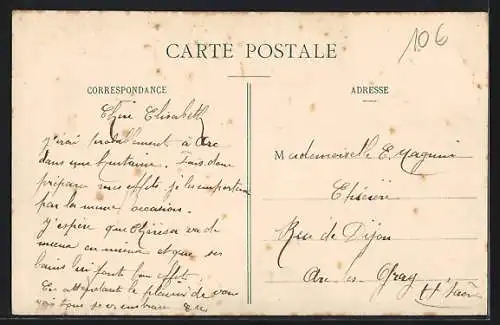 106
CARTE POSTALE
CORRESPONDANCE
ADRESSE
Chère Elisabeth
J'irai probablement à Arc
dans une huitaine. Fais donc
prépare mes effets je les emporterai
par la même occasion.
J'espère que va de
mieux en mieux et que ses
bains lui font bon effet.
En attendant le plaisir de vous
voir tous je vous embrasse
Mademoiselle E. Magnin
Epicerie
Rue de Dijon
Arc-les-Gray
Hte Saône